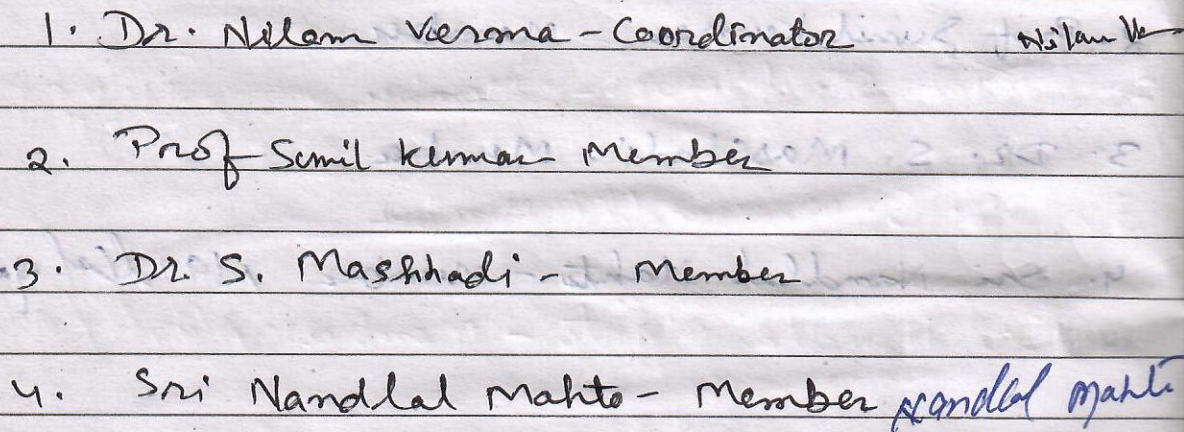 1. Dr. Nilam Verma - Coordinator Nilam Ve
2. Prof Sunil Kumar Member
3. Dr. S. Mashhadi - Member
4. Sri Nandlal Mahto - Member Nandlal Mahto